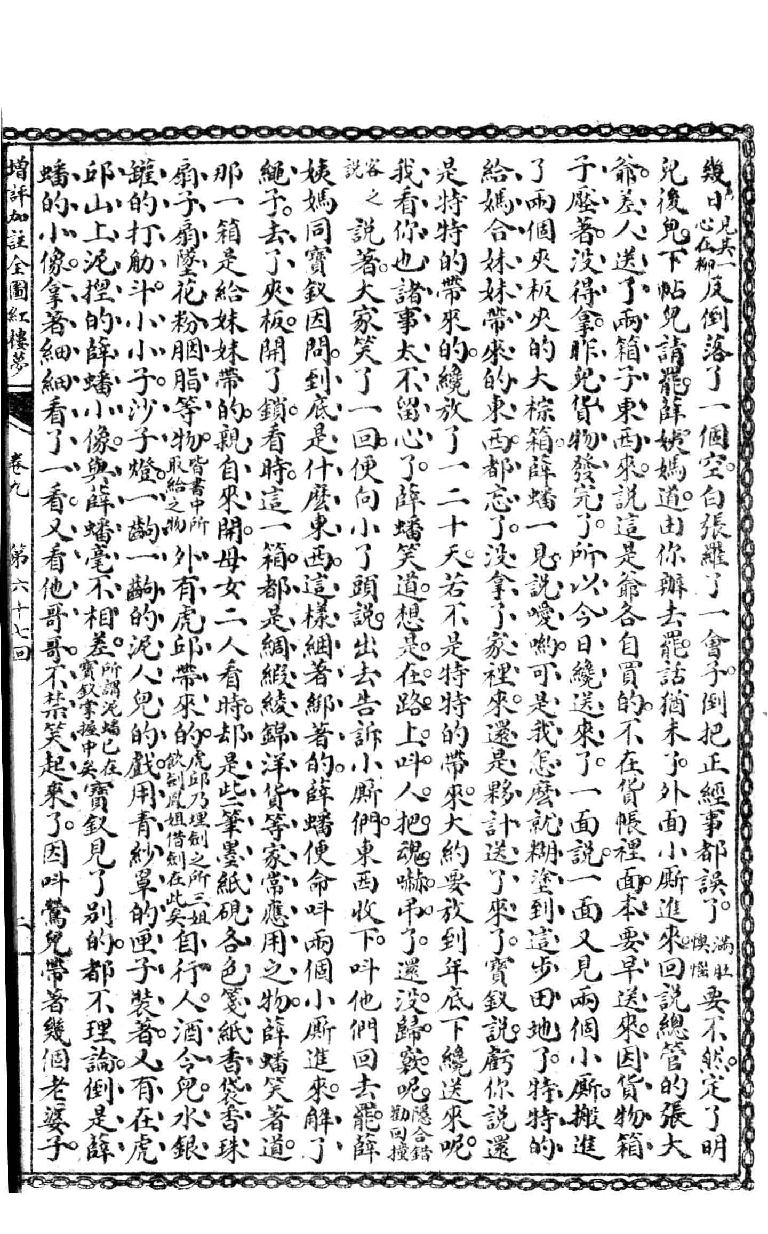 幾日見其一心在柳反倒落了一個空白張羅了一會子倒把正經事都誤了滿肚懊惱要不然定了明
兒後兒下帖兒請罷薛姨媽道由你辦去罷話猶未了外面小厮進來回説總管的張大
爺差人送了兩箱子東西來説這是爺各自買的不在貨帳裡面本要早送來因貨物箱
子壓著没得拿昨兒貨物發完了所以今日纔送來了一面説一面又見兩個小厮搬進
了兩個夾板夾的大棕箱薛蟠一見説噯喲可是我怎麽就糊塗到這步田地了特特的
給媽合妹妹帶來的東西都忘了没拿了家裡來還是夥計送了來了寶釵説虧你説還
是特特的帶來的纔放了一二十天若不是特特的帶來大約要放到年底下纔送來呢
我看你也諸事太不留心了薛蟠笑道想是在路上叫人把魂嚇弔了還没歸竅呢隱合錯勸回護
客之説説著大家笑了一回便向小了頭説出去告訴小厮們東西收下叫他們回去罷薛
姨媽同寶釵因問到底是什麽東西這樣綑著綁著的薛蟠便命叫兩個小厮進來解了
繩子去了夾板開了鎖看時這一箱都是綢緞綾錦洋貨等家常應用之物薛蟠笑著道
那一箱是給妹妹帶的親自來開母女二人看時却是些筆墨紙硯各色箋紙香袋香珠
扇子扇墜花粉胭脂等物皆書中所取給之物外有虎邱帶來的虎邱乃埋劍之所三姐飲劍鳳姐借劍在此矣自行人酒令兒水銀
罐的打觔斗小小子沙子燈一齣一齣的泥人兒的戲用青紗罩的匣子裝著又有在虎
邱山上泥揑的薛蟠小像與薛蟠毫不相差所謂泥蟠已在寶釵掌握中矣寶釵見了别的都不理論倒是薛
蟠的小像拿著細細看了一看又看他哥哥不禁笑起來了因叫鶯兒帶著幾個老婆子
増評加註全圖紅樓夢
卷九
第六十七回